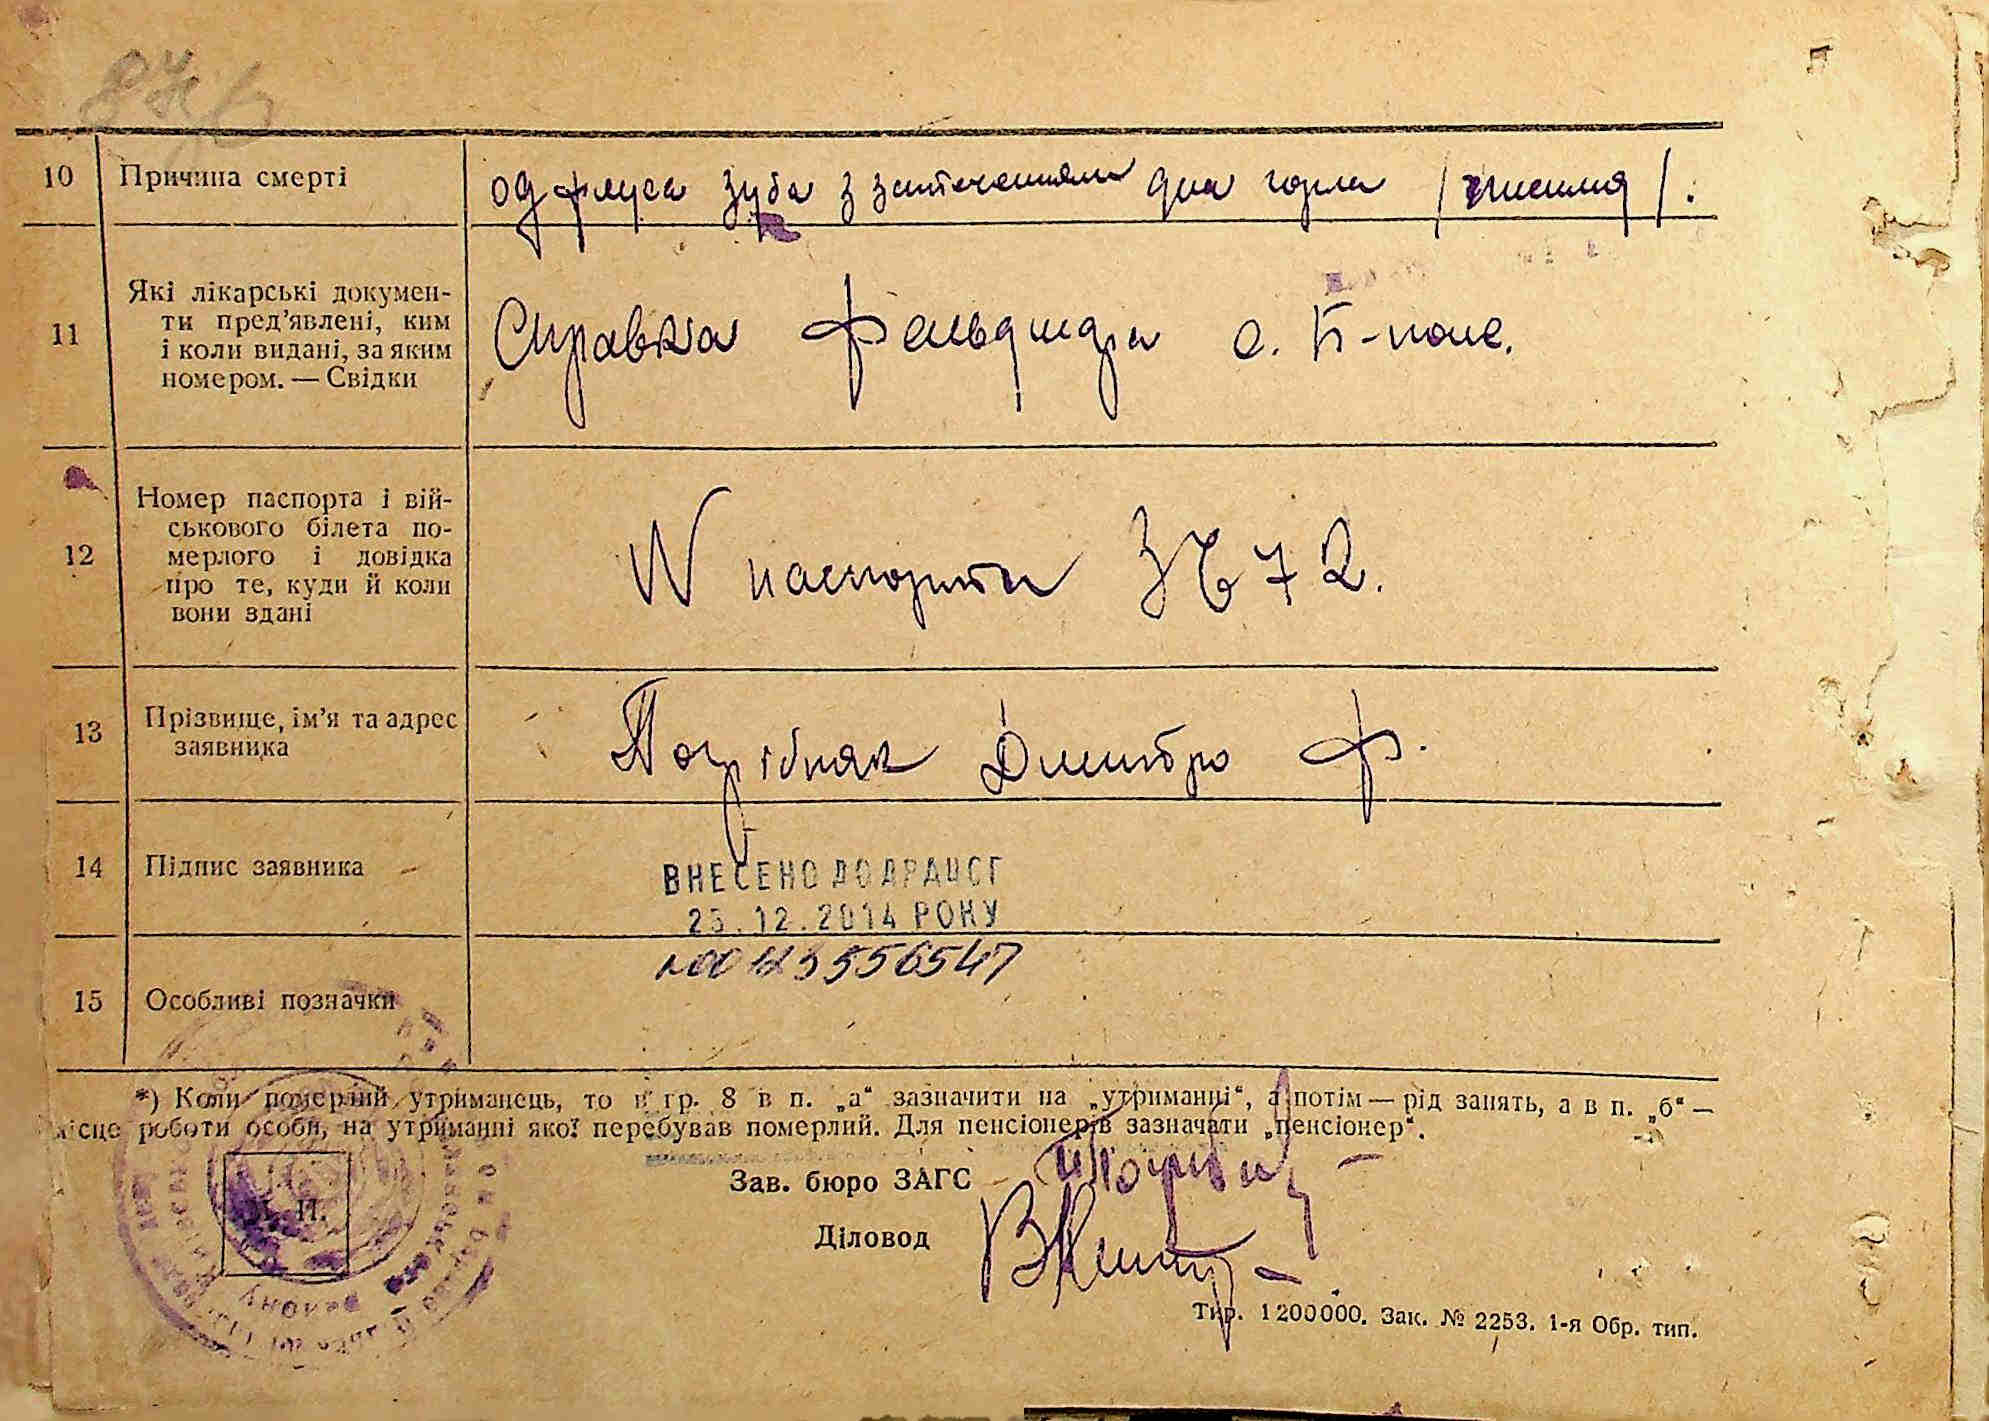 10 Причина смерті од флуса зуба з затеченням дна горла / /.
Які лікарські докумен-
ти пред'явлені, ким
11 і коли видані, за яким Справка фельдшера с. Б-поле.
номером. — Свідки
Номер паспорта і вій-
ськового білета по-
12 мерлого і довідка N паспорта 3672.
про те, куди й коли
вони здані
13 Прізвище, ім'я та адрес Погрібняк Дмитро Ф.
заявника
14 Підпис заявника ВНЕСЕНО ДО ДРАЦСГ
25.12.2014 РОКУ
15 Особливі позначки
*) Коли померлий утриманець, то в гр. 8 в п. „а“ зазначити на „утриманні“, а потім — рід занять, а в п. „б“ —
місце роботи особи, на утриманні якої перебував померлий. Для пенсіонерів зазначати „пенсіонер“.
Зав. бюро ЗАГС
М. П.
Діловод
Тир. 1200000. Зак. № 2253. 1-я Обр. тип.